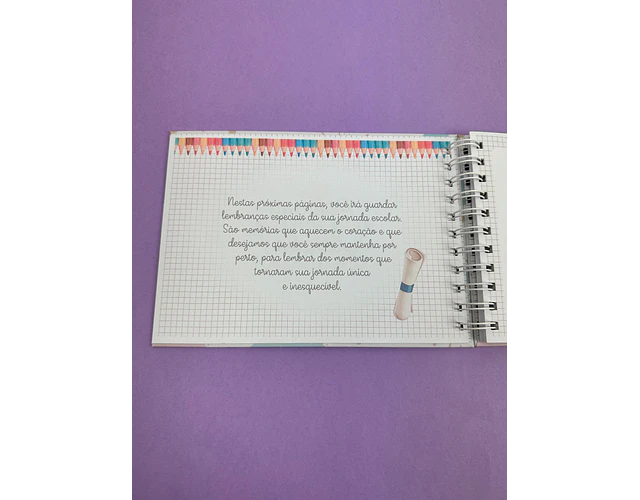 Nestas próximas páginas, você irá guardar
lembranças especiais da sua jornada escolar.
São memórias que aquecem o coração e que
desejamos que você sempre mantenha por
perto, para lembrar dos momentos que
tornaram sua jornada única
e inesquecível.